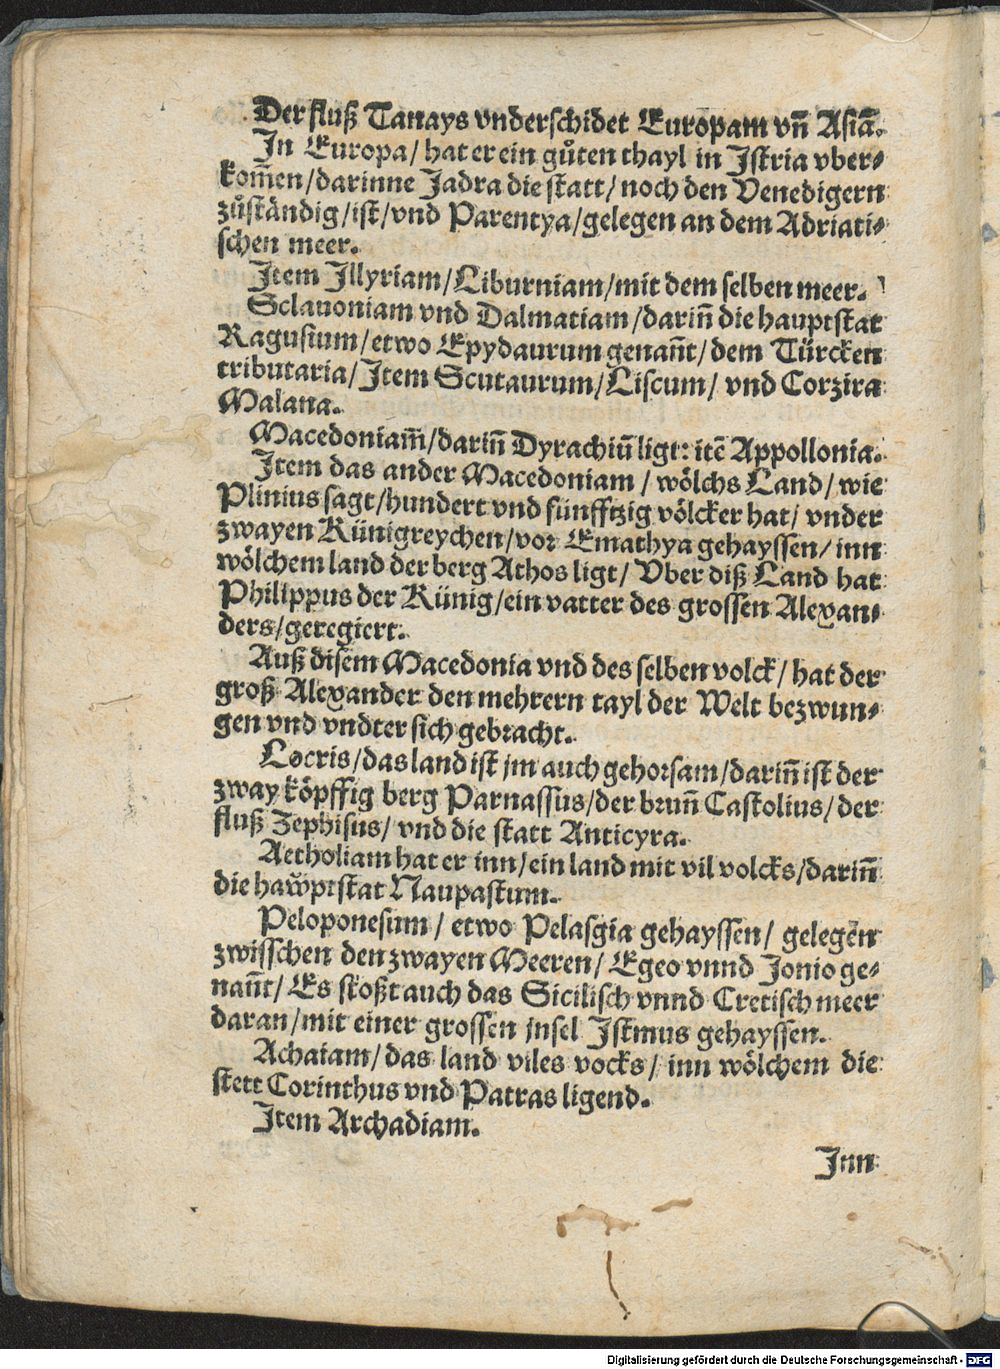 Der fluß Tanays vnderschidet Europam vn̄ Asiā.
In Europa/ hat er ein gůten thayl in Istria vber⸗
kom̄en/ darinne Jadra die statt/ noch den Venedigern
zůständig/ ist/ vnd Parentya/ gelegen an dem Adriati⸗
schen meer.
Item Illyriam/ Liburniam/ mit dem selben meer.
Sclauoniam vnd Dalmatiam/ darin̄ die hauptstat
Ragusium/ etwo Epydaurum genan̄t/ dem Türcken
tributaria/ Item Scutaurum/ Liscum/ vnd Corzira
Malana.
Macedoniam̄/ darin̄ Dyrachiū ligt: itē Appollonia.
Item das ander Macedoniam/ wölchs Land/ wie
Plinius sagt/ hundert vnd fünfftzig völcker hat/ vnder
zwayen Künigreychen/ vor Emathya gehayssen/ inn
wölchem land der berg Athos ligt/ Vber diß Land hat
Philippus der Künig/ ein vatter des grossen Alexan⸗
ders/ geregiert.
Auß disem Macedonia vnd des selben volck/ hat der
groß Alexander den mehrern tayl der Welt bezwun⸗
gen vnd vndter sich gebracht.
Locris/ das land ist jm auch gehorsam/ darin̄ ist der
zway köpffig berg Parnassus/ der brun̄ Castolius/ der
fluß Zephisus/ vnd die statt Anticyra.
Aetholiam hat er inn/ ein land mit vil volcks/ darin̄
die haẅptstat Naupastum.
Peloponesum/ etwo Pelasgia gehayssen/ gelegen
zwisschen den zwayen Meeren/ Egeo vnnd Jonio ge⸗
nan̄t/ Es stoßt auch das Sicilisch vnnd Cretisch meer
daran/ mit einer grossen jnsel Istmus gehayssen.
Achaiam/ das land viles vocks/ inn wölchem die
stett Corinthus vnd Patras ligend.
Item Archadiam.
Inn
Digitalisierung gefördert durch die Deutsche Forschungsgemeinschaft - DFG